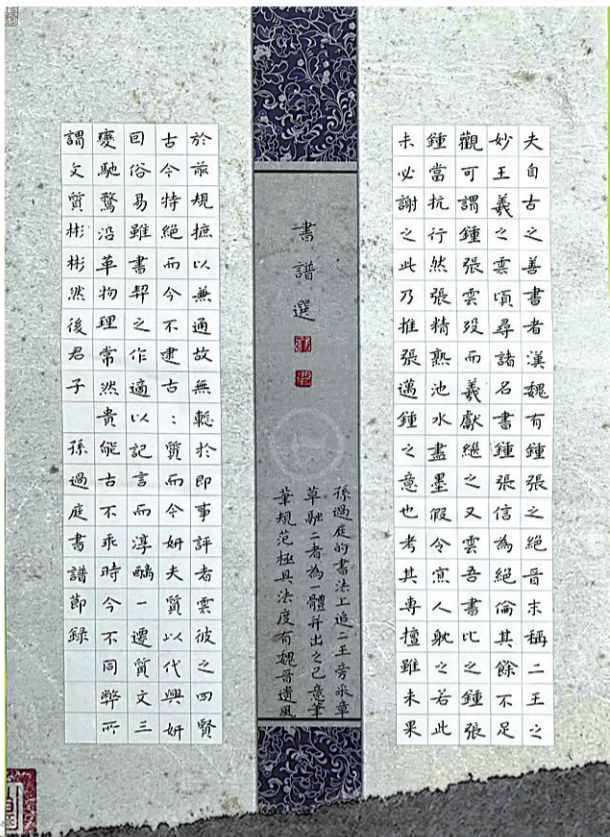 夫自古之善書者漢魏有鍾張之絕晉末稱二王之
妙王羲之雲頃尋諸名書鍾張信為絕倫其餘不足
觀可謂鍾張雲歿而羲獻繼之又雲吾書比之鍾張
鍾當抗行然張精熟池水盡墨假令寡人耽之若此
未必謝之此乃推張邁鍾之意也考其專擅雖未果
書譜選
孫過庭的書法上追二王旁承章
草融二者為一體并出之己意筆
筆規范極具法度有魏晉遺風
於前規摭以兼通故無慙於即事評者雲彼之四賢
古今特絕而今不逮古：質而今妍夫質以代興妍
因俗易雖書契之作適以記言而淳醨一遷質文三
變馳騖沿革物理常然貴能古不乖時今不同弊所
謂文質彬彬然後君子 孫過庭書譜節録